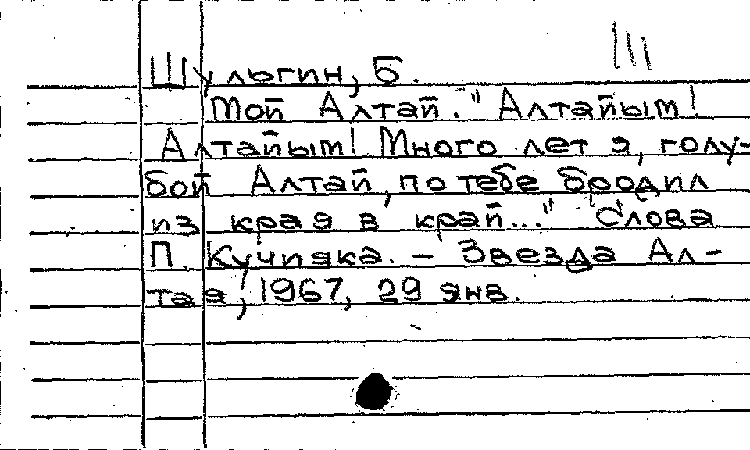 III
Шульгин, Б.
Мой Алтай. "Алтайым!
Алтайым! Много лет я, голу-
бой Алтай, по тебе бродил
из края в край..." Слова
П. Кучияка. – Звезда Ал-
тая, 1967, 29 янв.